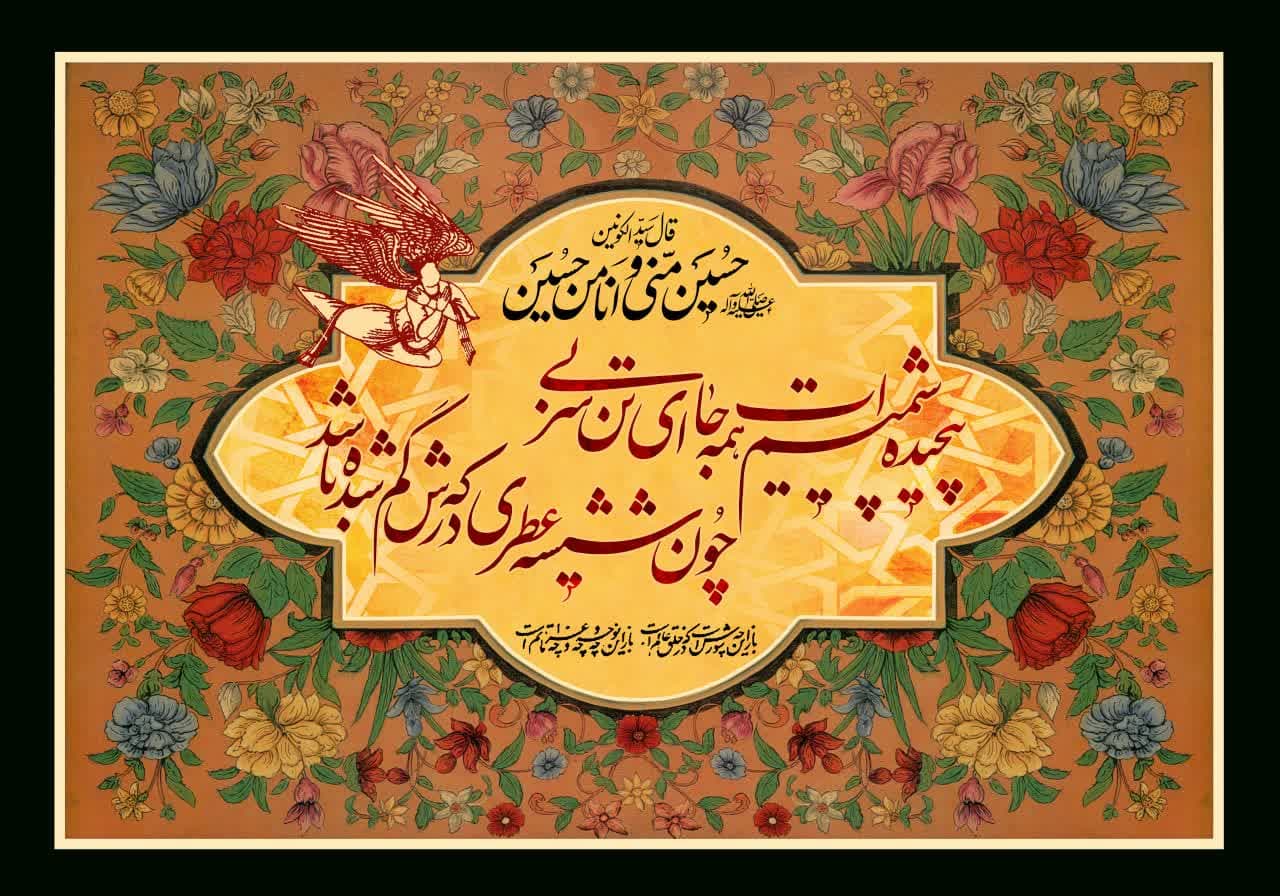 قال سَیّد الکونین
حُسَین مِنّی وَ اَنَا مِن حُسَین
صلی الله علیه وآله
پیچیده شمیمت همه جا ای تن بی سر
چون شیشه عطری که درش گم شده باشد
باز این چه شورش است که در خلق عالم است
باز این چه نوحه و چه عزا و چه ماتم است